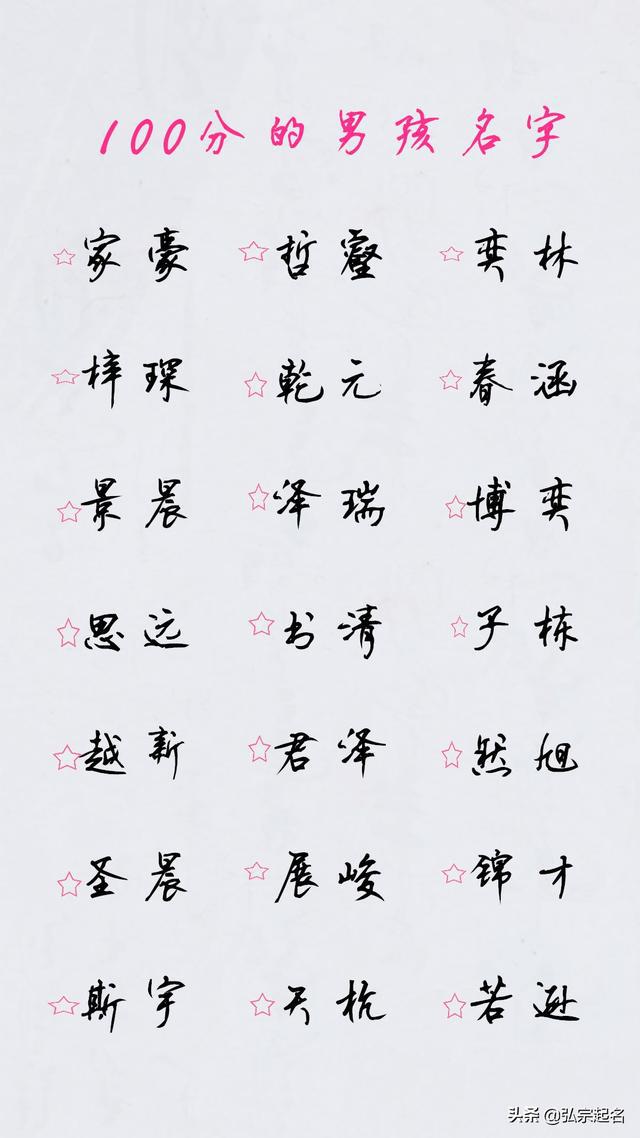 100分的男孩名字
☆家豪 ☆哲睿 ☆奕林
☆梓琛 ☆乾元 ☆春涵
☆景晨 ☆泽瑞 ☆博奕
☆思远 ☆书清 ☆子栋
☆越新 ☆君泽 ☆然旭
☆圣晨 ☆展峻 ☆锦才
☆斯宇 ☆天杭 ☆若逊
头条 @弘宗起名